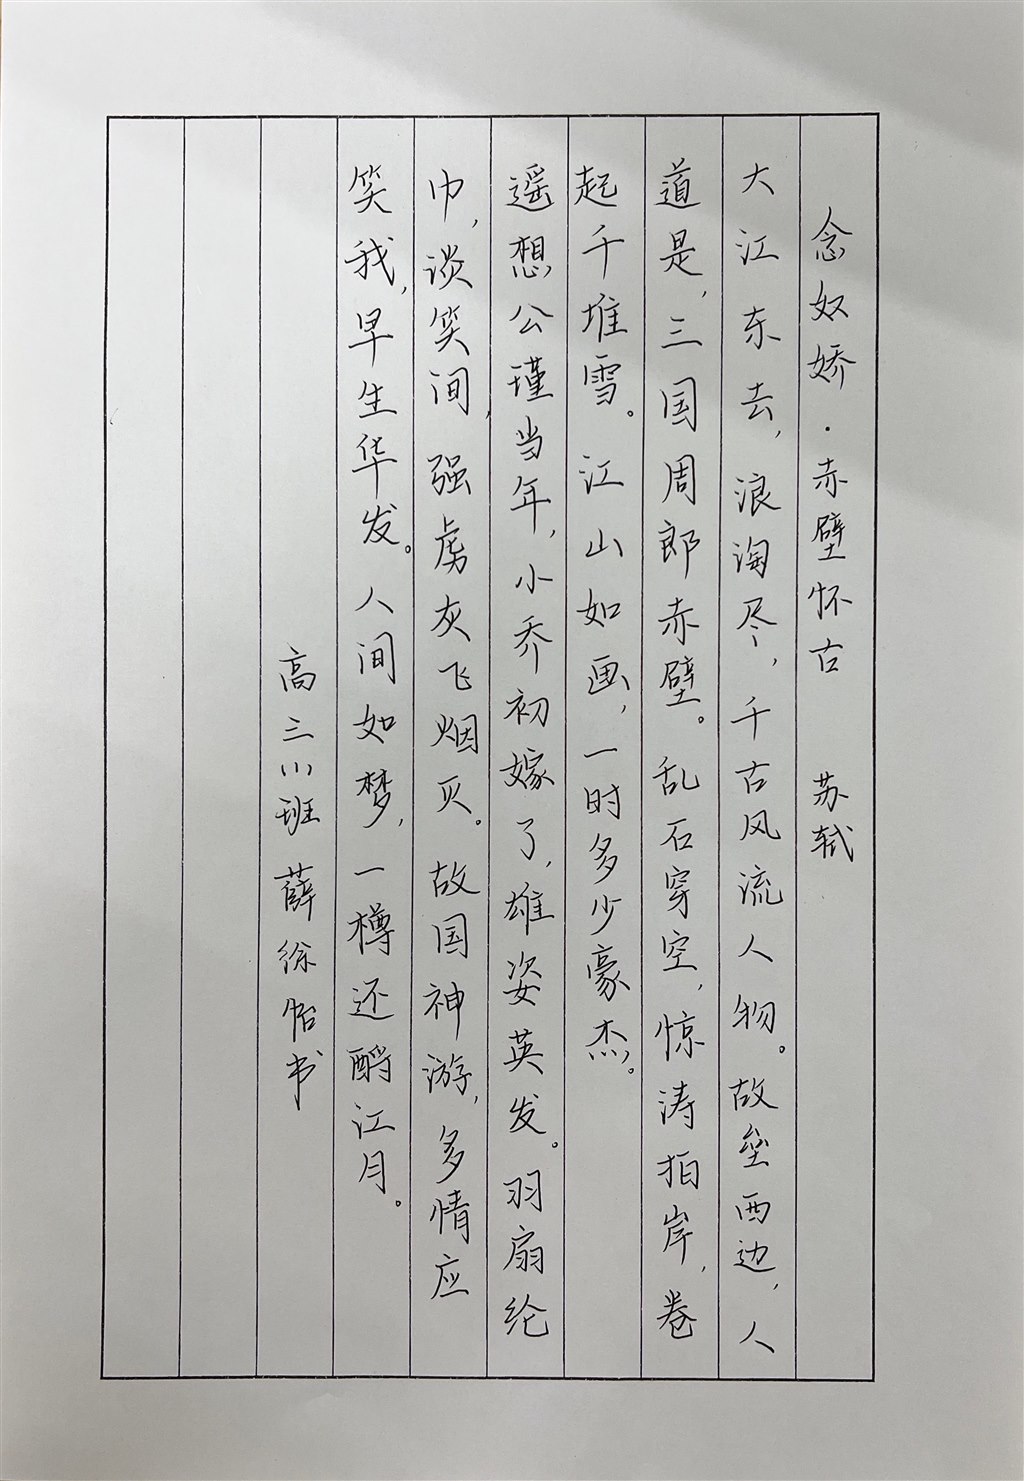 念奴娇·赤壁怀古 苏轼
大江东去，浪淘尽，千古风流人物。故垒西边，人
道是，三国周郎赤壁。乱石穿空，惊涛拍岸，卷
起千堆雪。江山如画，一时多少豪杰。
遥想公瑾当年，小乔初嫁了，雄姿英发。羽扇纶
巾，谈笑间，强虏灰飞烟灭。故国神游，多情应
笑我，早生华发。人间如梦，一樽还酹江月。
高三班 薛徐书